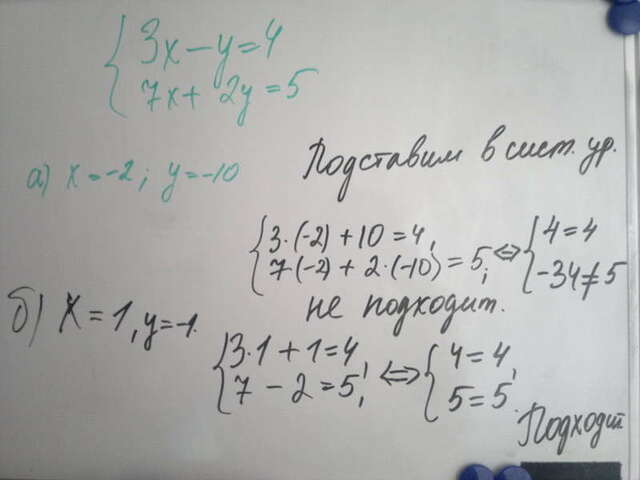 3x-y=4
7x+2y=5
а) x=-2; y=-10
Подставим в сист. ур.
3·(-2)+10=4, ⇔ 4=4
7·(-2)+2·(-10)=5; -34≠5
не подходит.
б) x=1, y=-1.
3·1+1=4, ⇔ 4=4,
7-2=5; 5=5.
Подходит